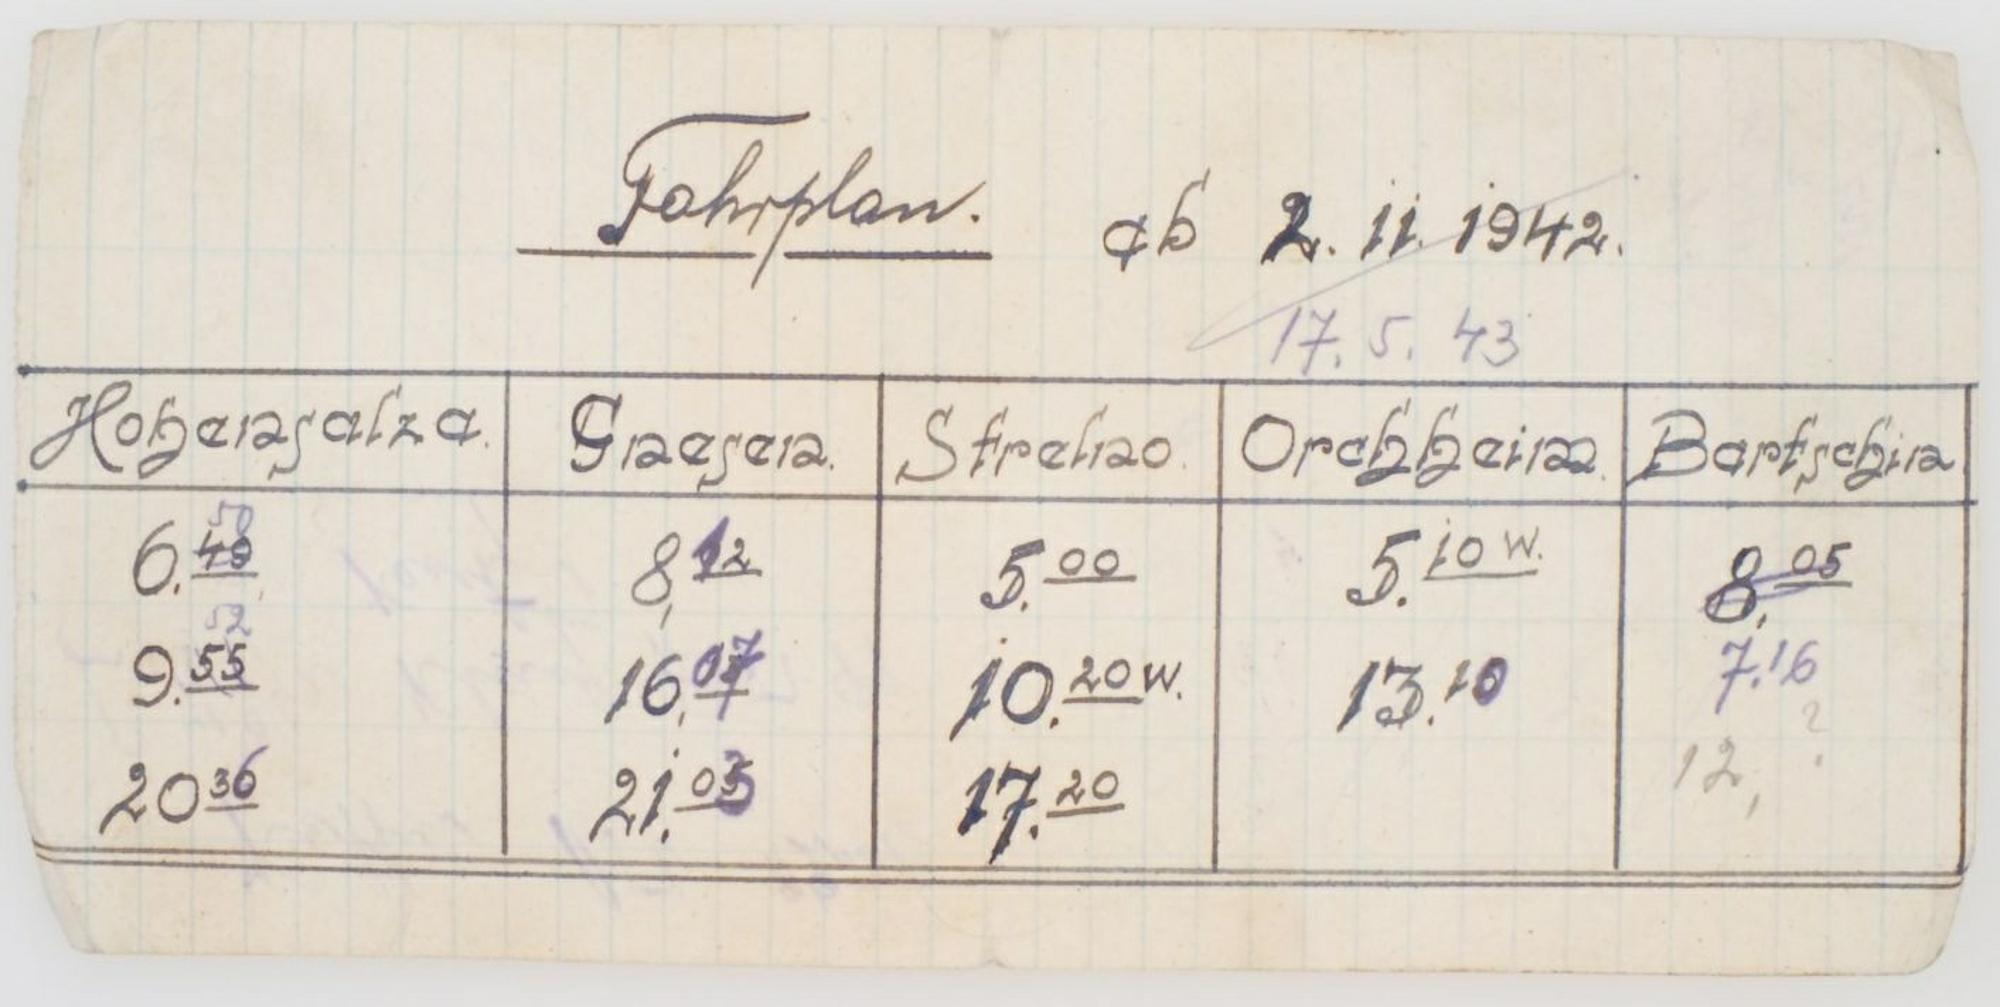 Fahrplan. ab 2. 11. 1942.
17. 5. 43
Hohensalza. Gnesen. Strelno. Orchheim. Bartschin
50
6.40 8,12 5.00 5.10 W. 8,05
52
9.55 16,07 10.20 W. 13.10 7.16
20 36 21.03 17.20 12, ?